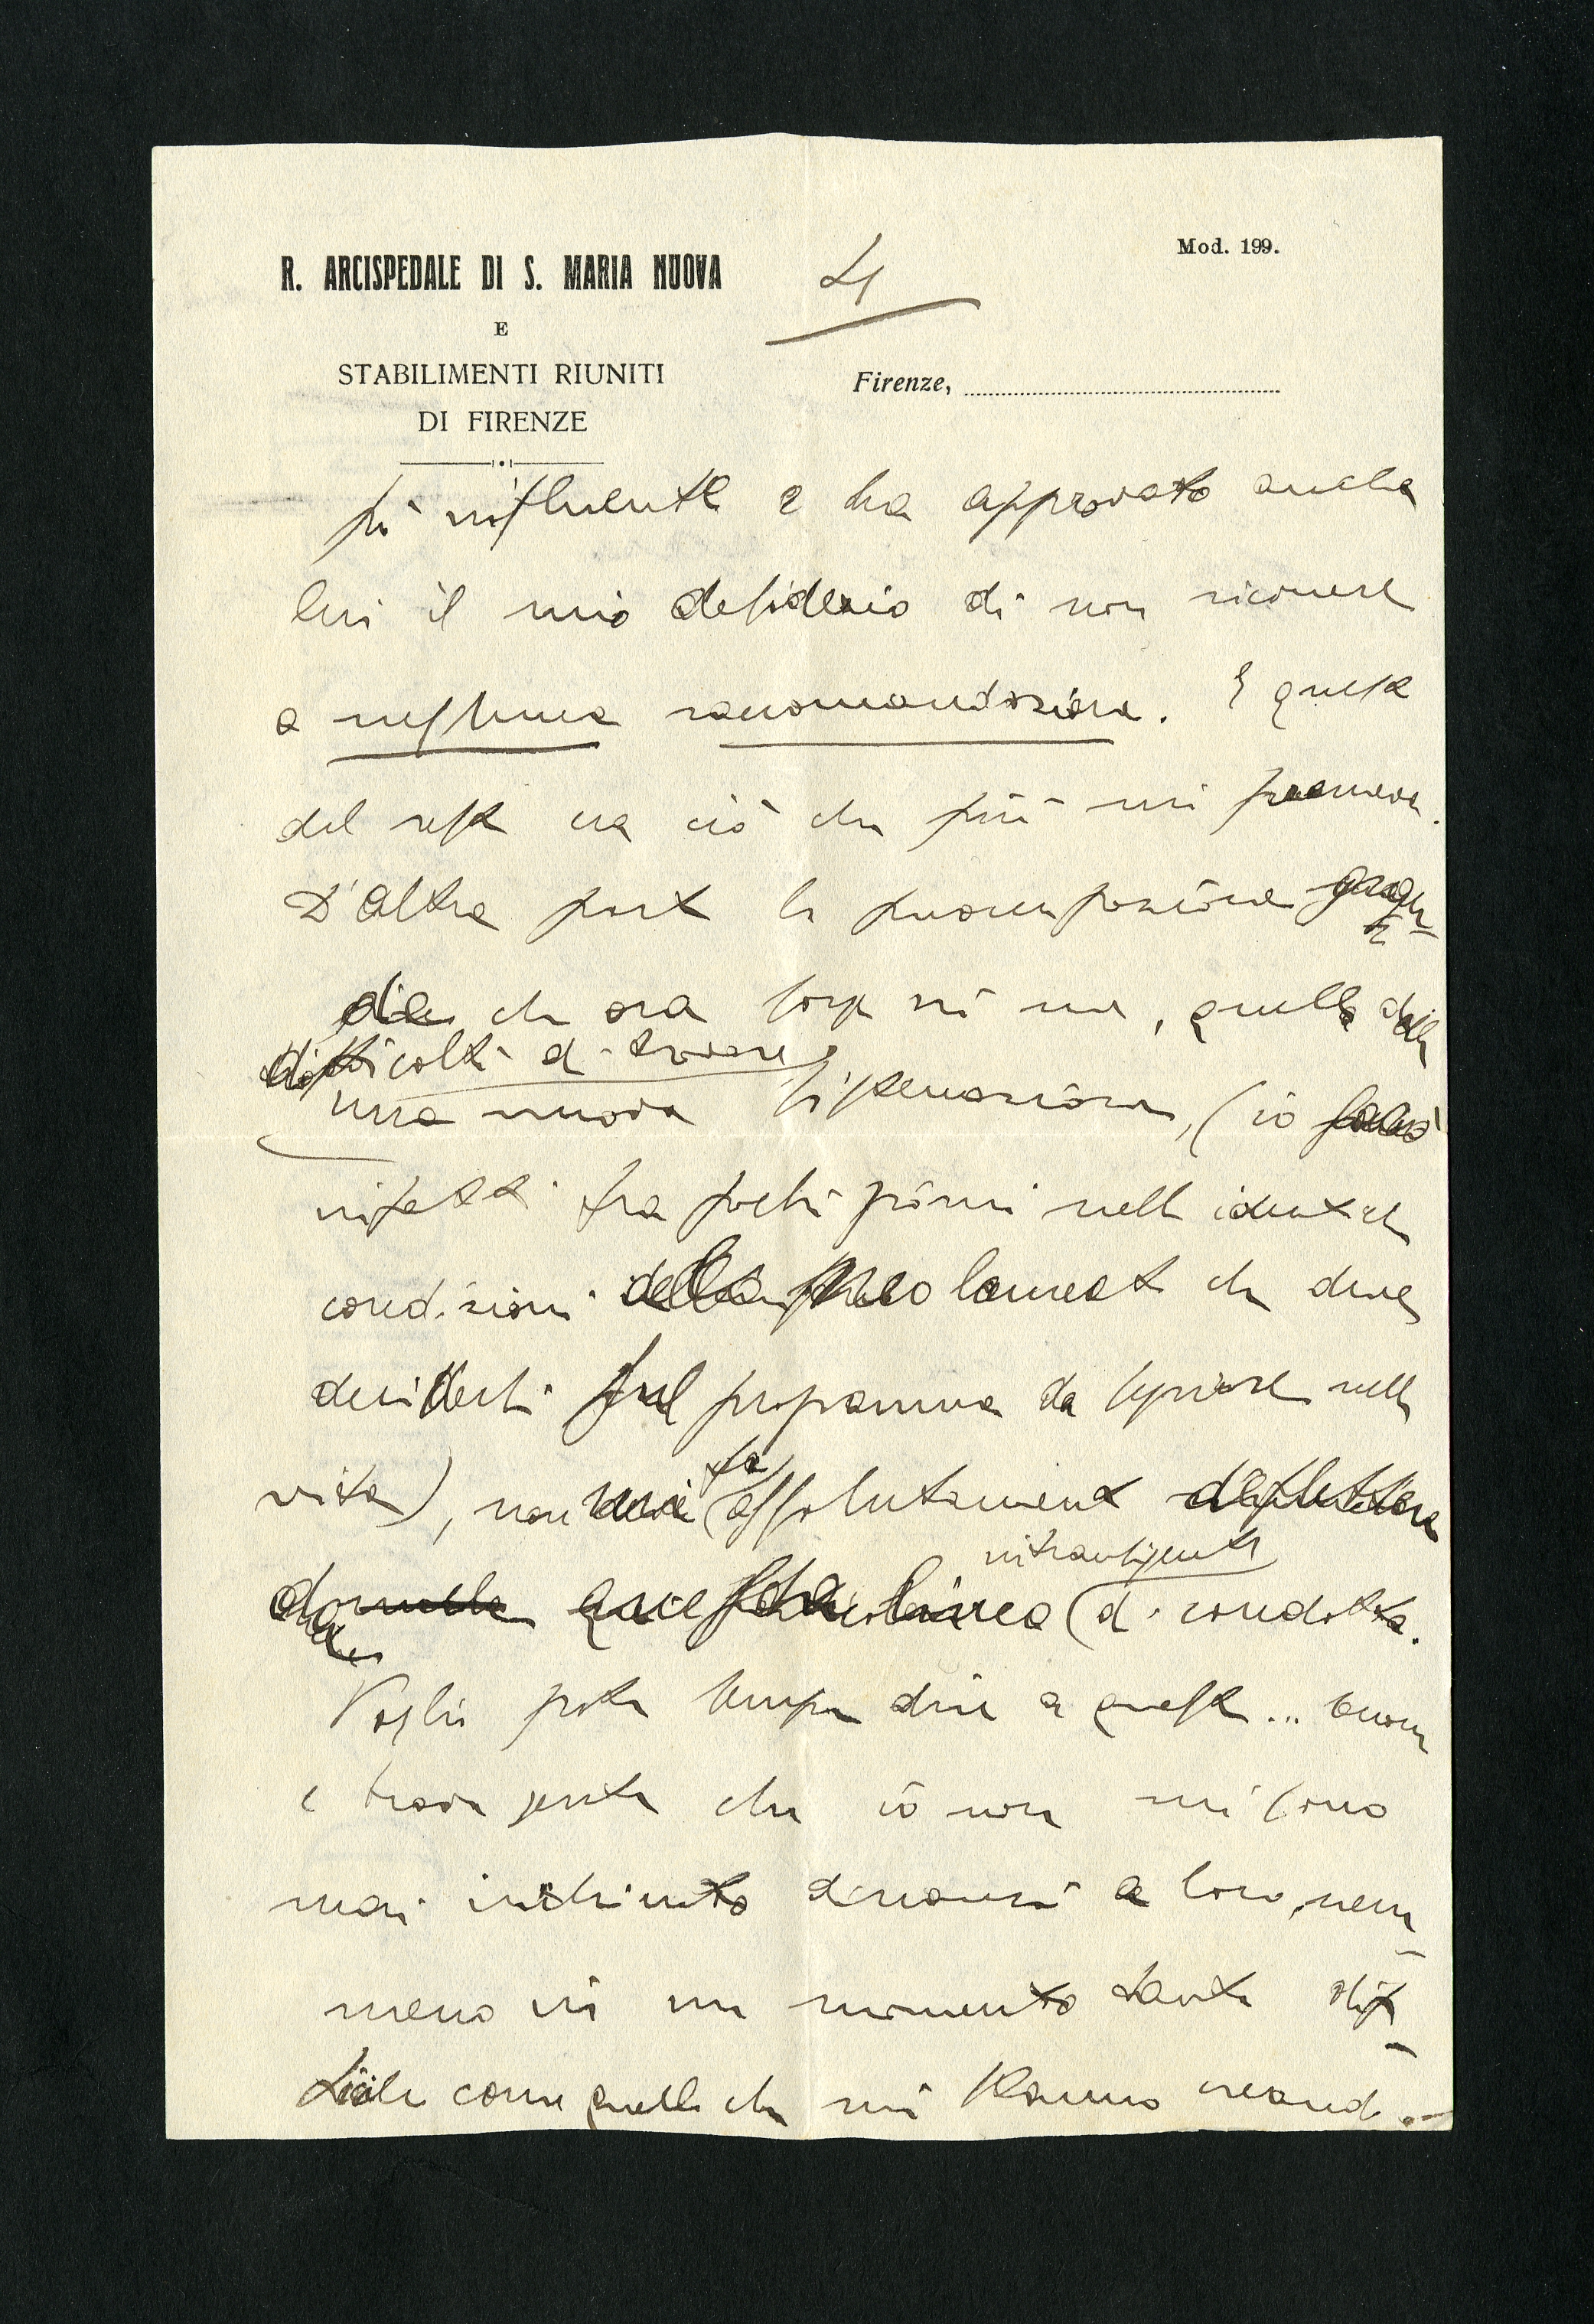 R. ARCISPEDALE DI S. MARIA NUOVA
E
STABILIMENTI RIUNITI
DI FIRENZE
4
Mod. 199.
Firenze,
più influente e ha approvato anche
lui il mio desiderio di non ricorrere
a nessuna raccomandazione. E questo
del resto era ciò che più mi premeva.
D'altra parte la preoccupazione
che ora sorge in me, quella della
difficoltà di trovare
una nuova sistemazione, (io sarò
infatti fra pochi giorni nelle identiche
condizioni del neo laureato che deve
decidersi sul programma da seguire nella
vita), non mi fa assolutamente deflettere
dalla linea intransigente di condotta.
Voglio poter sempre dire a questa... buona
e brava gente che io non mi sono
mai inchinato dinanzi a loro, nem-
meno in un momento tanto dif-
ficile come quello che mi stanno creando.